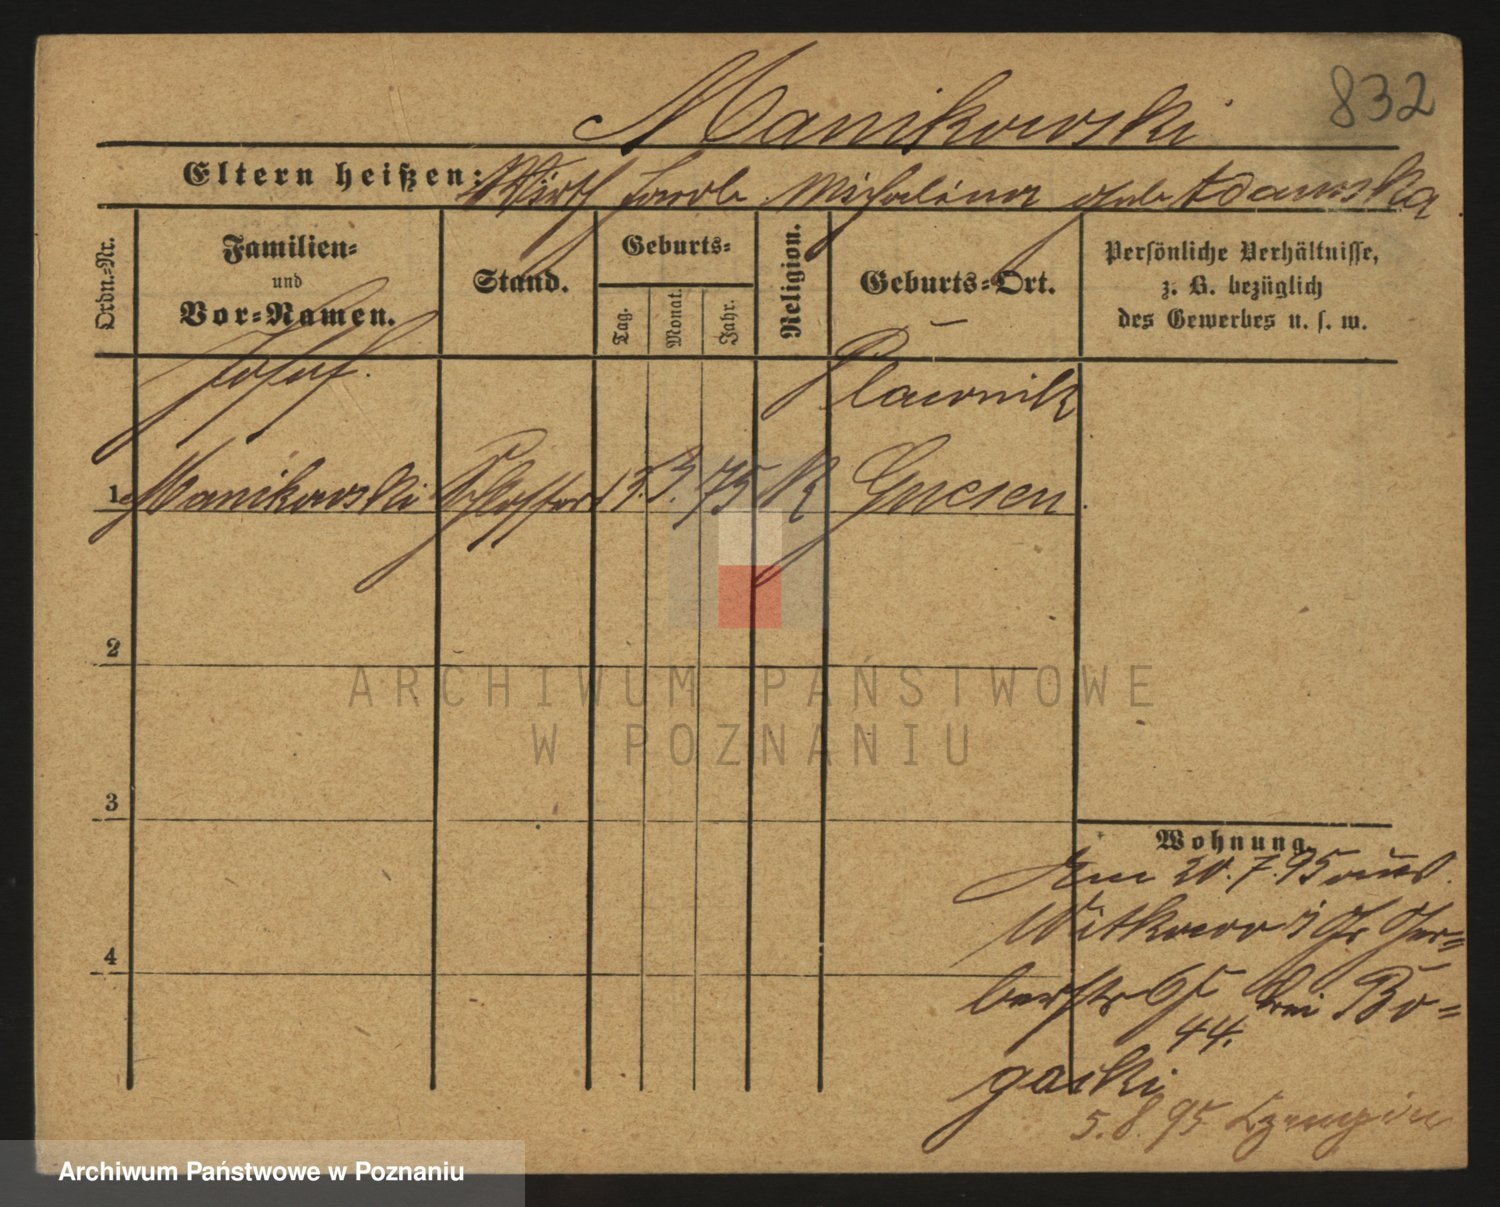 832
Manikowski
Eltern heißen: Wirth Jacob Michalina geb Adamska
Ordn.-Nr.
Familien-
und
Vor-Namen.
Stand.
Geburts-
Tag.
Monat.
Jahr.
Religion.
Geburts-Ort.
Persönliche Verhältnisse,
z. B. bezüglich
des Gewerbes u. s. w.
Josef
Plawnik
1 Manikowski Schlosser 13. 3. 75 K Gnesen
2
3
4
Wohnung.
Am 20.7.95 aus
Witkowo Ger=
berstr bei Bo=
44.
gacki
5.8.95
ARCHIWUM PAŃSTWOWE
W POZNANIU
Archiwum Państwowe w Poznaniu